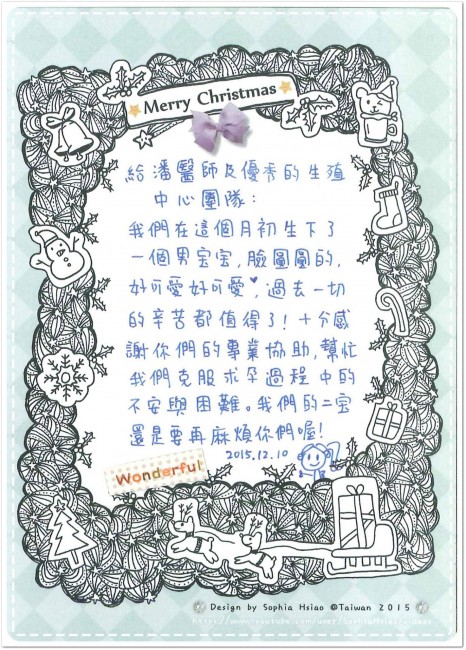 Merry Christmas
給潘醫師及優秀的生殖
中心團隊：
我們在這個月初生下了
一個男宝宝，臉圓圓的，
好可愛好可愛♥，過去一切
的辛苦都值得了！十分感
謝你們的專業協助，幫忙
我們克服求孕過程中的
不安與困難。我們的二宝
還是要再麻煩你們喔！
2015.12.10
Wonderful
Design by Sophia Hsiao @Taiwan 2015